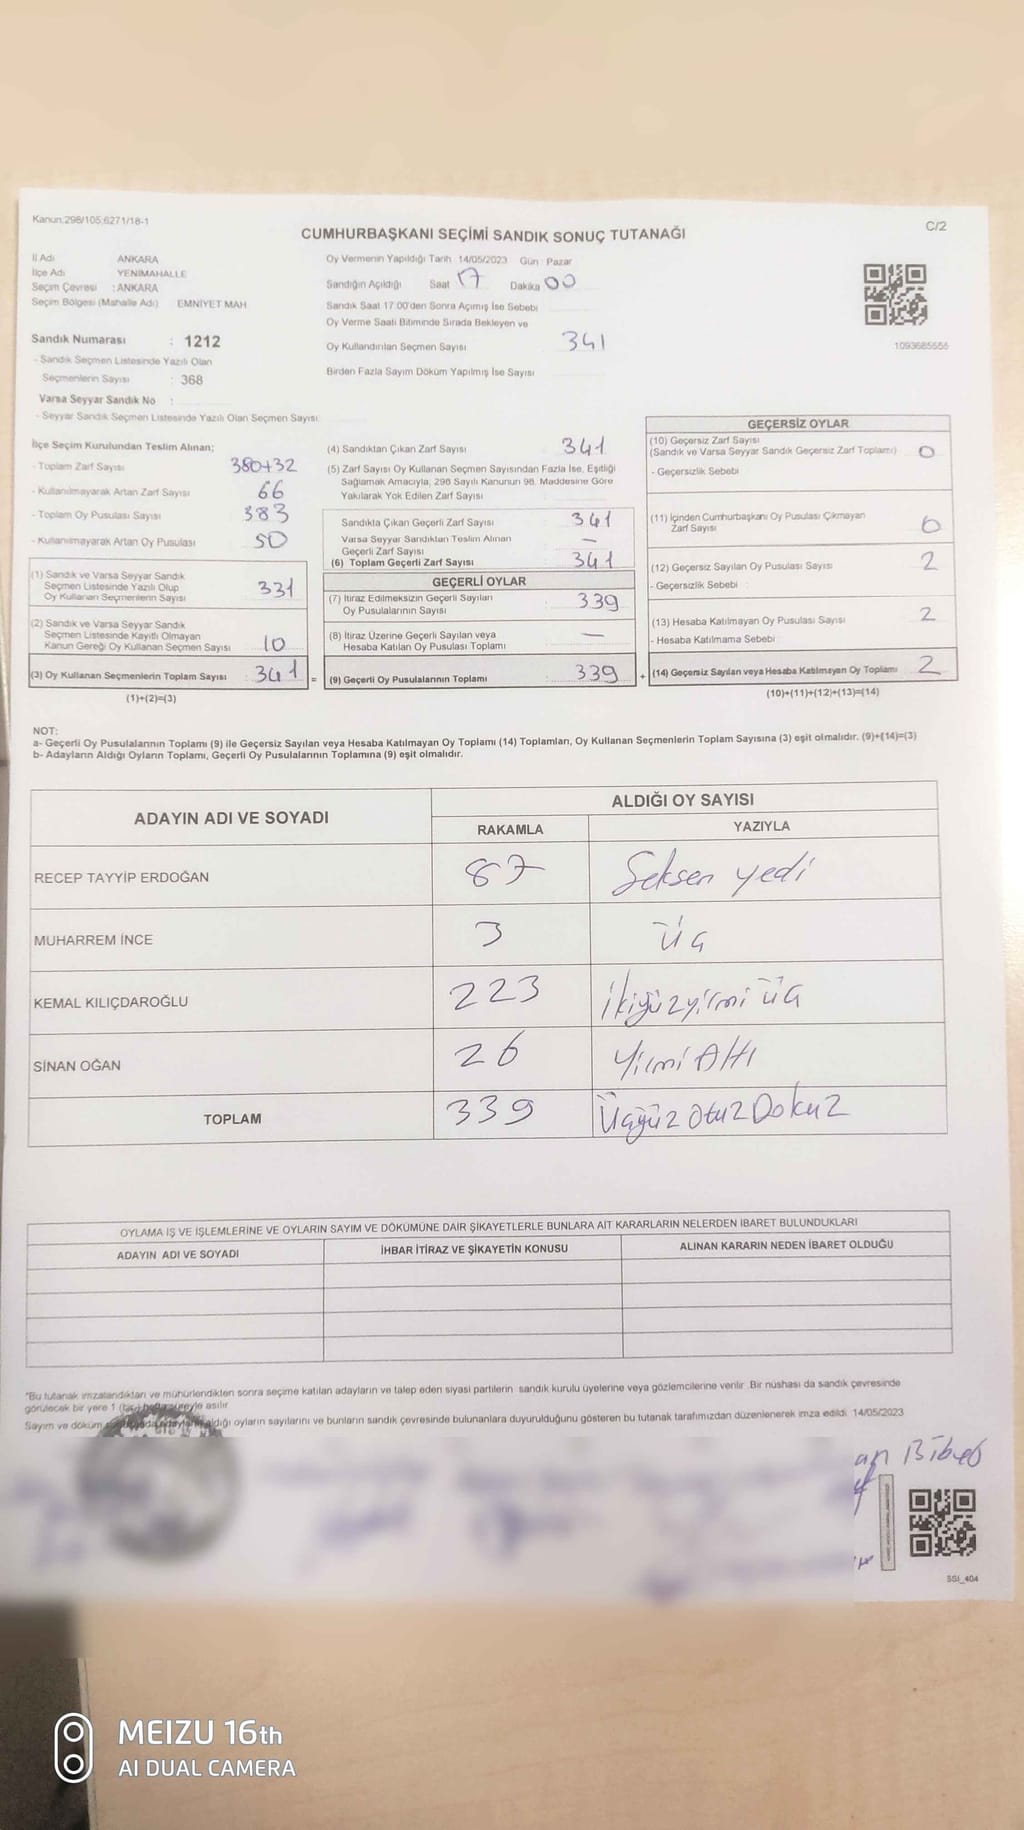 Kanun:298/105,6271/18-1
C/2
CUMHURBAŞKANI SEÇİMİ SANDIK SONUÇ TUTANAĞI
İl Adı ANKARA
İlçe Adı YENİMAHALLE
Seçim Çevresi : ANKARA
Seçim Bölgesi (Mahalle Adı) EMNİYET MAH
Sandık Numarası : 1212
- Sandık Seçmen Listesinde Yazılı Olan
Seçmenlerin Sayısı : 368
Varsa Seyyar Sandık No :
- Seyyar Sandık Seçmen Listesinde Yazılı Olan Seçmen Sayısı
Oy Vermenin Yapıldığı Tarih 14/05/2023 Gün : Pazar
Sandığın Açıldığı Saat 17 Dakika 00
Sandık Saat 17.00'den Sonra Açımış İse Sebebi
Oy Verme Saati Bitiminde Sırada Bekleyen ve
Oy Kullandırılan Seçmen Sayısı 341
Birden Fazla Sayım Döküm Yapılmış İse Sayısı
1093685555
İlçe Seçim Kurulundan Teslim Alınan;
- Toplam Zarf Sayısı 380+32
- Kullanılmayarak Artan Zarf Sayısı 66
- Toplam Oy Pusulası Sayısı 383
- Kullanılmayarak Artan Oy Pusulası 50
(1) Sandık ve Varsa Seyyar Sandık
Seçmen Listesinde Yazılı Olup
Oy Kullanan Seçmenlerin Sayısı 331
(2) Sandık ve Varsa Seyyar Sandık
Seçmen Listesinde Kayıtlı Olmayan
Kanun Gereği Oy Kullanan Seçmen Sayısı 10
(3) Oy Kullanan Seçmenlerin Toplam Sayısı : 341 =
(1)+(2)=(3)
(4) Sandıktan Çıkan Zarf Sayısı 341
(5) Zarf Sayısı Oy Kullanan Seçmen Sayısından Fazla İse, Eşitliği
Sağlamak Amacıyla, 298 Sayılı Kanunun 98. Maddesine Göre
Yakılarak Yok Edilen Zarf Sayısı
Sandıkta Çıkan Geçerli Zarf Sayısı 341
Varsa Seyyar Sandıktan Teslim Alınan
Geçerli Zarf Sayısı —
(6) Toplam Geçerli Zarf Sayısı 341
GEÇERLİ OYLAR
(7) İtiraz Edilmeksizin Geçerli Sayılan
Oy Pusulalarının Sayısı : 339
(8) İtiraz Üzerine Geçerli Sayılan veya
Hesaba Katılan Oy Pusulası Toplamı —
(9) Geçerli Oy Pusulalarının Toplamı : 339 +
GEÇERSİZ OYLAR
(10) Geçersiz Zarf Sayısı
(Sandık ve Varsa Seyyar Sandık Geçersiz Zarf Toplamı) 0
- Geçersizlik Sebebi
(11) İçinden Cumhurbaşkanı Oy Pusulası Çıkmayan
Zarf Sayısı 0
(12) Geçersiz Sayılan Oy Pusulası Sayısı 2
- Geçersizlik Sebebi :
(13) Hesaba Katılmayan Oy Pusulası Sayısı 2
- Hesaba Katılmama Sebebi
(14) Geçersiz Sayılan veya Hesaba Katılmayan Oy Toplamı 2
(10)+(11)+(12)+(13)=(14)
NOT:
a- Geçerli Oy Pusulalarının Toplamı (9) ile Geçersiz Sayılan veya Hesaba Katılmayan Oy Toplamı (14) Toplamları, Oy Kullanan Seçmenlerin Toplam Sayısına (3) eşit olmalıdır. (9)+(14)=(3)
b- Adayların Aldığı Oyların Toplamı, Geçerli Oy Pusulalarının Toplamına (9) eşit olmalıdır.
ADAYIN ADI VE SOYADI
ALDIĞI OY SAYISI
RAKAMLA YAZIYLA
RECEP TAYYİP ERDOĞAN 87 Seksen yedi
MUHARREM İNCE 3 Üç
KEMAL KILIÇDAROĞLU 223 ikiyüzyirmi üç
SİNAN OĞAN 26 Yirmi Altı
TOPLAM 339 Üçyüz Otuz Dokuz
OYLAMA İŞ VE İŞLEMLERİNE VE OYLARIN SAYIM VE DÖKÜMÜNE DAİR ŞİKAYETLERLE BUNLARA AİT KARARLARIN NELERDEN İBARET BULUNDUKLARI
ADAYIN ADI VE SOYADI İHBAR İTİRAZ VE ŞİKAYETİN KONUSU ALINAN KARARIN NEDEN İBARET OLDUĞU
*Bu tutanak imzalandıktan ve mühürlendikten sonra seçime katılan adayların ve talep eden siyasi partilerin sandık kurulu üyelerine veya gözlemcilerine verilir. Bir nüshası da sandık çevresinde
görülecek bir yere 1 (bir) hafta süreyle asılır.
Sayım ve döküm aldığı oyların sayılarını ve bunların sandık çevresinde bulunanlara duyurulduğunu gösteren bu tutanak tarafımızdan düzenlenerek imza edildi. 14/05/2023
SSI_404
MEIZU 16th
AI DUAL CAMERA